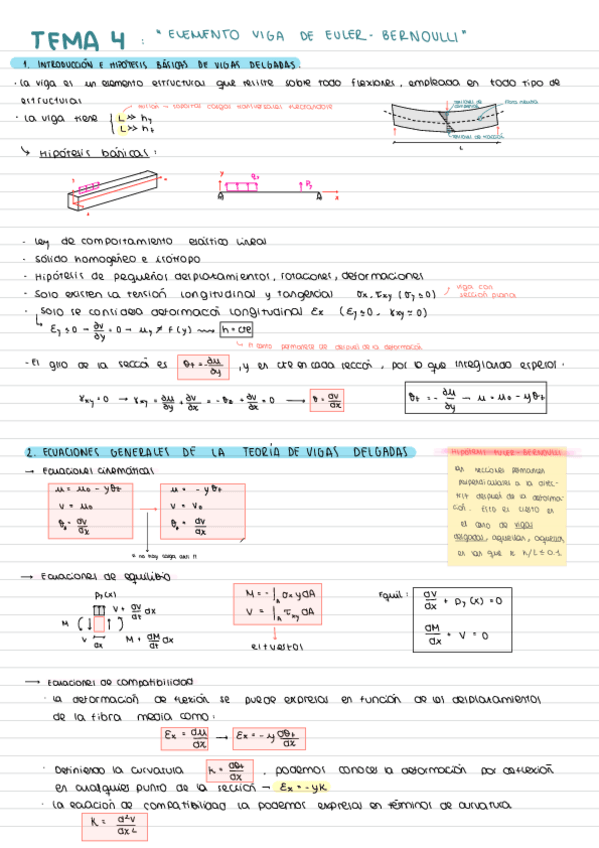 TEMA 4 : "ELEMENTO VIGA DE EULER-BERNOULLI"
1. INTRODUCCIÓN E HIPÓTESIS BÁSICAS DE VIGAS DELGADAS.
· La viga es un elemento estructural que resiste sobre todo flexiones, empleada en todo tipo de
estructuras
· La viga tiene { L >> hy
L >> hz
L
↳ Hipótesis básicas:
· Ley de comportamiento elástico lineal
· Sólido homogéneo e isótropo
· Hipótesis de pequeños desplazamientos, rotaciones, deformaciones
· Solo existen la tensión longitudinal y tangencial σx, τxy (σy ≈ 0)
viga con
sección plana
· Solo se considera deformación longitudinal εx (εy ≈ 0, γxy ≈ 0)
εy ≈ 0 → ∂v/∂y = 0 → uy ≠ f(y) ⟿ h = cte
· El giro de la sección es θz = -∂u/∂y, y en cte en cada sección, por lo que integrando espesor:
γxy = 0 → γxy = ∂u/∂y + ∂v/∂x = -θz + ∂v/∂x = 0 → θ = dv/dx
θz = -∂u/∂y → u = u0 - yθz
2. ECUACIONES GENERALES DE LA TEORÍA DE VIGAS DELGADAS
HIPÓTESIS EULER-BERNOULLI
Las secciones permanecen
perpendiculares a la direc-
triz después de la deforma-
ción. Esto es cierto en
el caso de vigas
delgadas, aquellas, aquellas
en las que
→ Ecuaciones cinemáticas
u = u0 - yθz
θz = dv/dx
u = - yθz
v = v0
θz = dv/dx
→ Ecuaciones de equilibrio
Py(x)
dx
M = -∫A σx y dA
V = ∫A τxy dA
esfuerzos
Equil: dV/dx + Py(x) = 0
dM/dx + V = 0
→ Ecuaciones de compatibilidad
· La deformación de flexión se puede expresar en función de los desplazamientos
de la fibra media como:
εx = du/dx → εx = -y dθz/dx
· Definiendo la curvatura K = dθz/dx, podemos conocer la deformación por deflexión
en cualquier punto de la sección → εx = -yK
· La ecuación de compatibilidad la podemos expresar en términos de curvatura
K = d²v/dx²